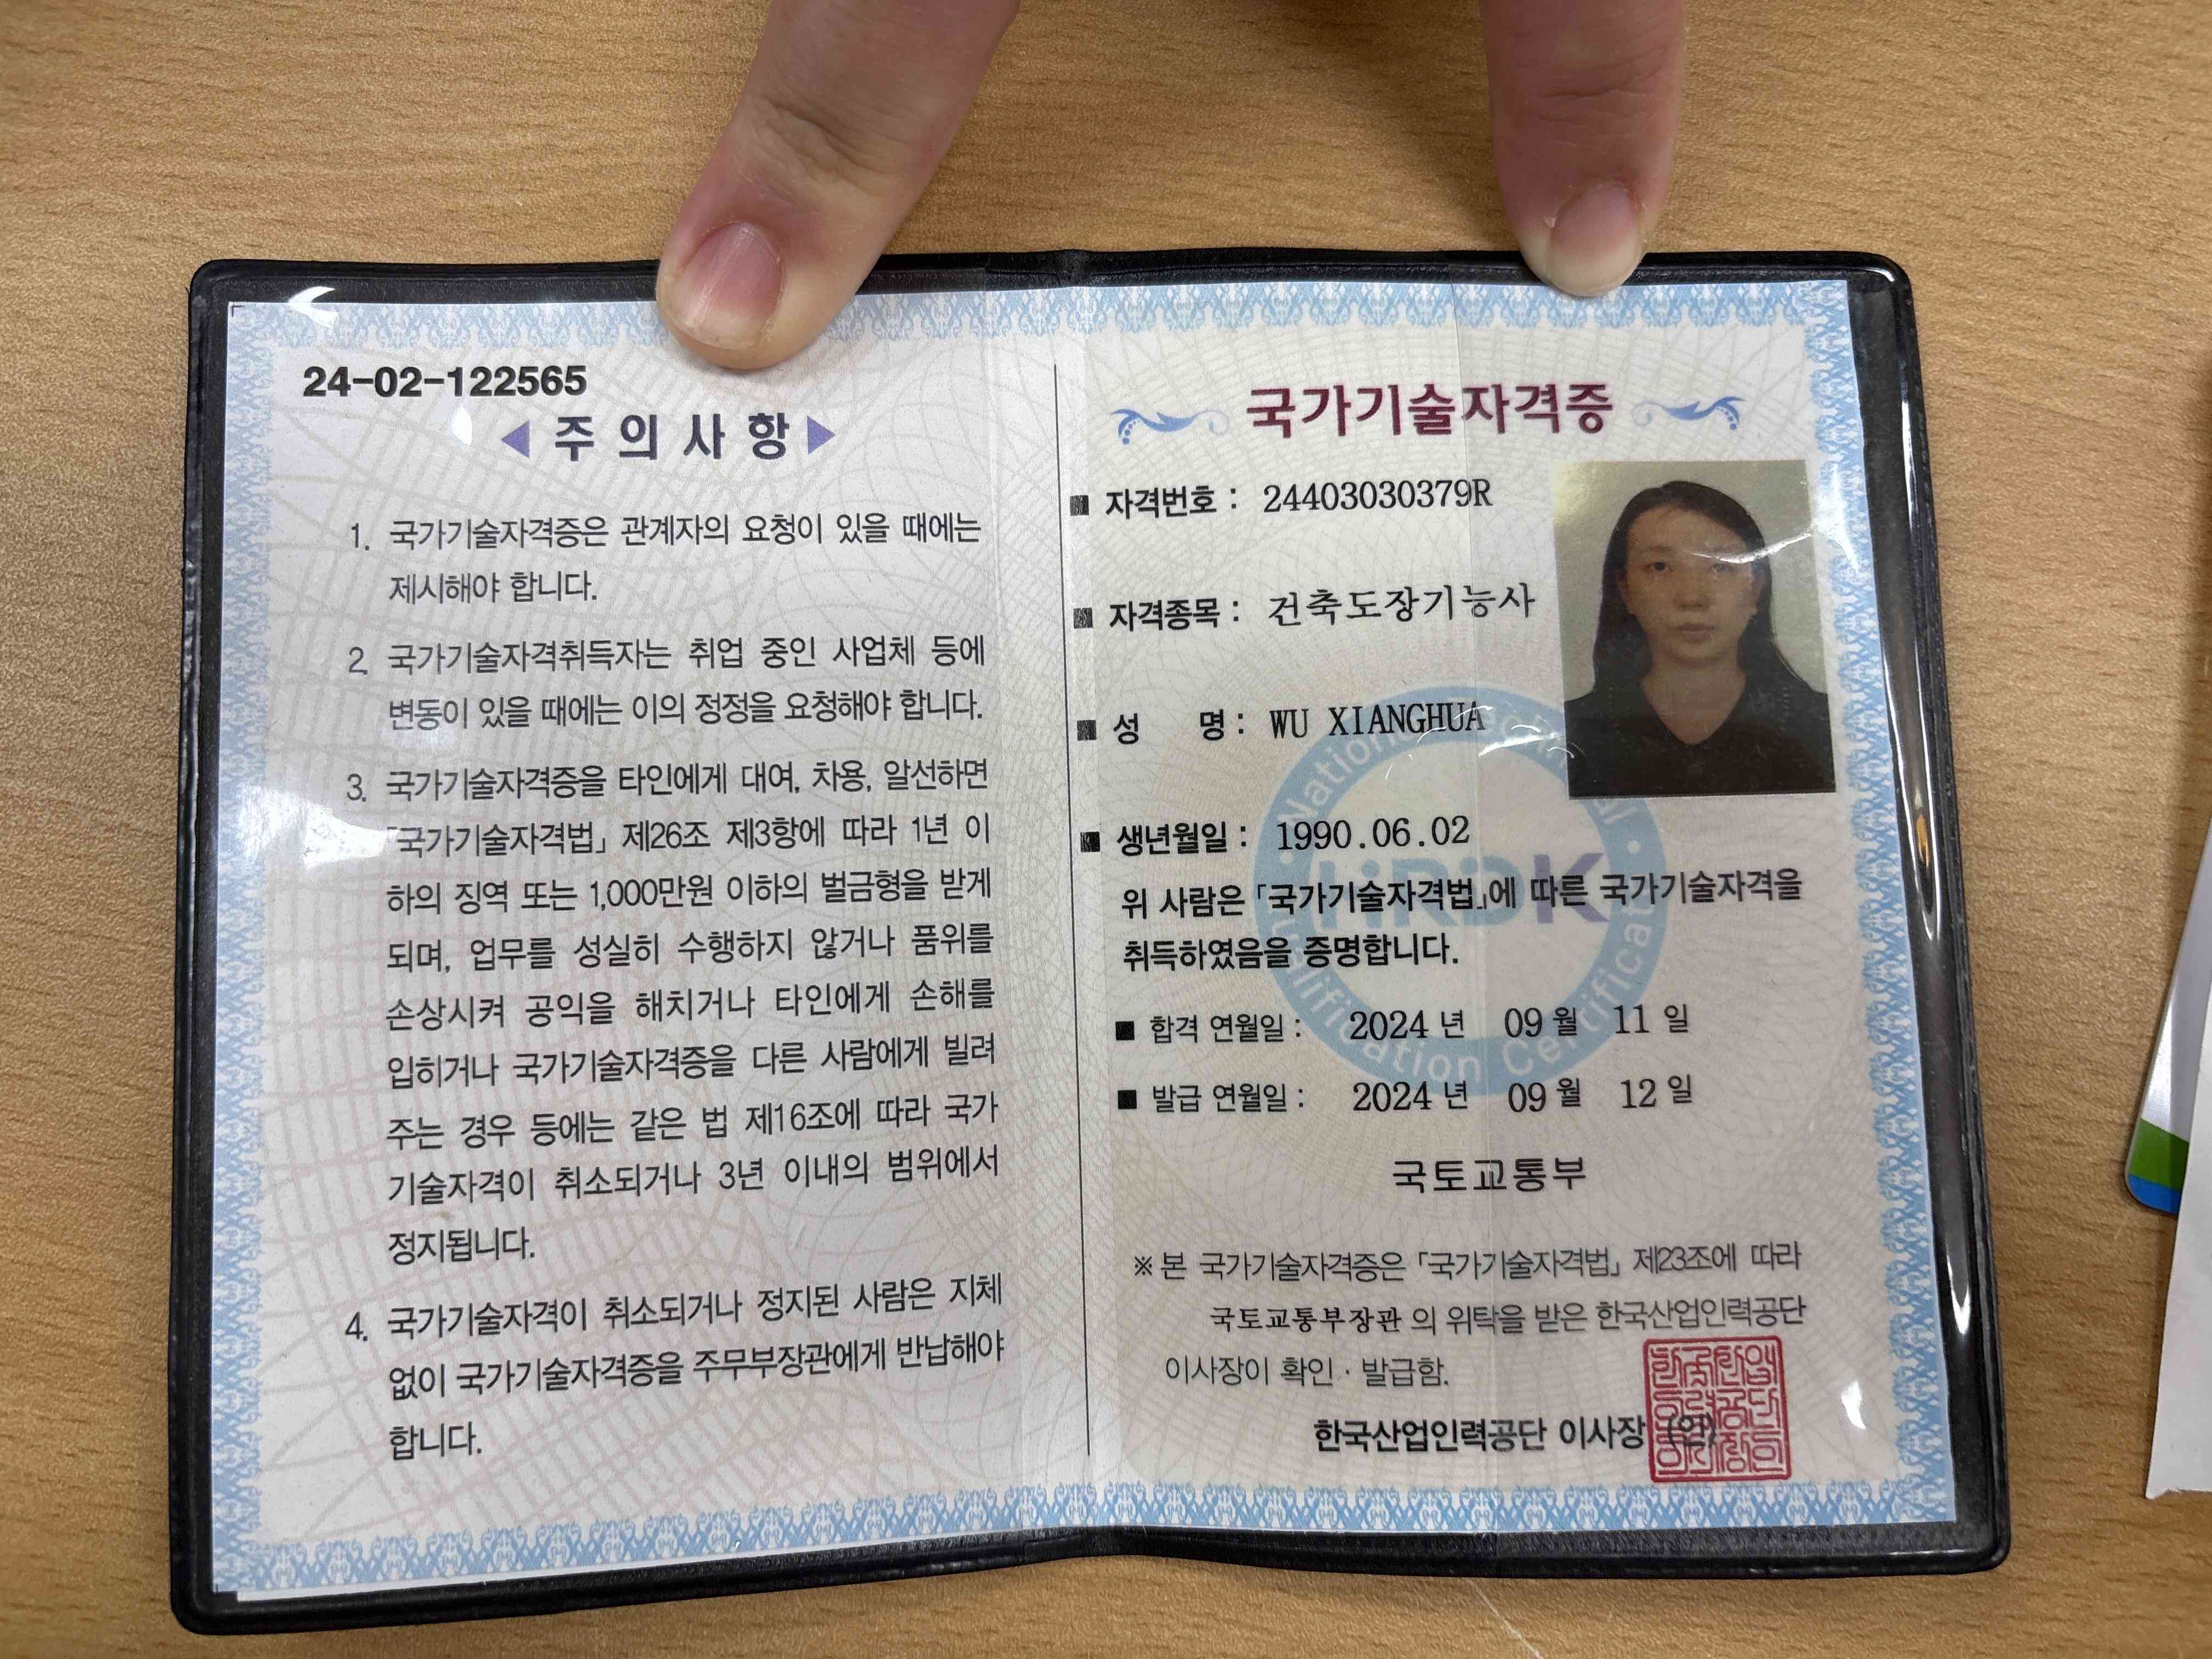 24-02-122565
주의사항
1. 국가기술자격증은 관계자의 요청이 있을 때에는
제시해야 합니다.
2. 국가기술자격취득자는 취업 중인 사업체 등에
변동이 있을 때에는 이의 정정을 요청해야 합니다.
3. 국가기술자격증을 타인에게 대여, 차용, 알선하면
「국가기술자격법」 제26조 제3항에 따라 1년 이
하의 징역 또는 1,000만원 이하의 벌금형을 받게
되며, 업무를 성실히 수행하지 않거나 품위를
손상시켜 공익을 해치거나 타인에게 손해를
입히거나 국가기술자격증을 다른 사람에게 빌려
주는 경우 등에는 같은 법 제16조에 따라 국가
기술자격이 취소되거나 3년 이내의 범위에서
정지됩니다.
4. 국가기술자격이 취소되거나 정지된 사람은 지체
없이 국가기술자격증을 주무부장관에게 반납해야
합니다.
국가기술자격증
■ 자격번호 : 24403030379R
■ 자격종목 : 건축도장기능사
■ 성 명 : WU XIANGHUA
■ 생년월일 : 1990.06.02
위 사람은 「국가기술자격법」에 따른 국가기술자격을
취득하였음을 증명합니다.
■ 합격 연월일 : 2024 년 09 월 11 일
■ 발급 연월일 : 2024 년 09 월 12 일
국토교통부
※ 본 국가기술자격증은 「국가기술자격법」 제23조에 따라
국토교통부장관 의 위탁을 받은 한국산업인력공단
이사장이 확인 · 발급함.
한국산업인력공단 이사장 (인)
HRDK